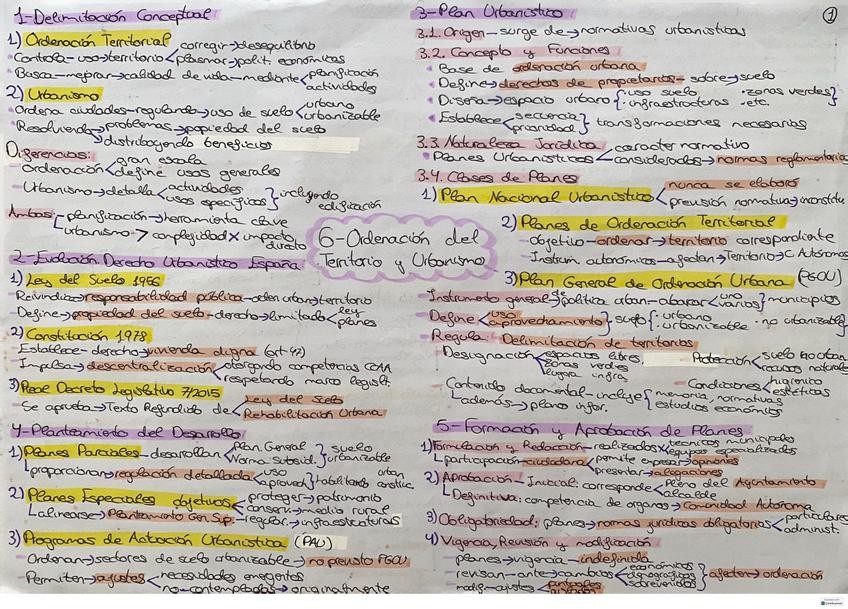 1-Delimitación Conceptual
1) Ordenación Territorial
Controla-uso→territorio corregir→desequilibrio
plasmar→polit. económicas
Busca-mejorar→calidad de vida-mediante planificación
actividades
2) Urbanismo
Ordena ciudades-regulando→uso de suelo urbano
urbanizable
Resolviendo→problemas→propiedad del suelo
distribuyendo beneficios
Diferencias:
Ordenación gran escala
define usos generales
Urbanismo→detalla actividades
usos específicos } incluyendo edificación
Ambas planificación→herramienta clave
urbanismo > complejidad x impacto directo
2-Evolución Derecho Urbanístico España
1) Ley del Suelo 1956
Reivindica→responsabilidad pública-orden urban→territorio
Define→propiedad del suelo-derecho→limitado ley
planes
2) Constitución 1978
Establece-derecho→vivienda digna (art 47)
Impulsa→descentralización otorgando competencias CCAA
respetando marco legisl.
3) Real Decreto Legislativo 7/2015
-Se aprueba→Texto Refundido de Ley del Suelo
Rehabilitación Urbana
4-Planteamiento del Desarrollo
1) Planes Parciales-desarrollan Plan. General
Norma Subsid. } suelo urbanizable
proporcionan→regulación detallada uso
aprovech } habilitando urban
construc
2) Planes Especiales objetivos proteger→patrimonio
conserv→medio rural
alinearse→Planteamiento Gen. Sup.-regular→infraestructuras
3) Programas de Actuación Urbanística (PAU)
-Ordenan→sectores de suelo urbanizable→no previsto PGOU
-Permiten→ajustes necesidades emergentes
no contempladas→originalmente
6-Ordenación del
Territorio y Urbanismo
3-Plan Urbanístico
1
3.1. Origen-surge de→normativas urbanísticas
3.2. Concepto y Funciones
Base de ordenación urbana
Define→derechos de propietarios-sobre→suelo
Diseña→espacio urbano { uso suelo · zonas verdes
infraestructuras · etc. }
Establece secuencia
prioridad } transformaciones necesarias
3.3 Naturaleza Jurídica carácter normativo
Planes Urbanísticos considerados→normas reglamentarias
3.4. Clases de Planes
1) Plan Nacional Urbanístico nunca se elaboró
previsión normativa→inconstitu.
2) Planes de Ordenación Territorial
-objetivo-ordenar→territorio correspondiente
-Instrum. autonómicos-afectan→Territorio→C. Autónomas
3) Plan General de Ordenación Urbana (PGOU)
-Instrumento general→política urban-abarcar uno
varios } municipios
-Define uso
aprovechamiento } suelo { · urbano
· urbanizable · no urbanizable }
-Regula: Delimitación de territorios
Designación espacios libres,
zonas verdes
lugares infra.
Protección suelo no urban
recursos natural
-Condiciones higiénico
estéticas
-Contenido documental-incluye memoria, normativas
estudios económicos
además→plano infor.
5-Formación y Aprobación de Planes
1) Formulación y Redacción-realizados x técnicos municipales
equipos especializados
participación-ciudadana permite expresar→opiniones
presentar→alegaciones
2) Aprobación-Inicial: corresponde Pleno del Ayuntamiento
alcalde
Definitiva: competencia de órganos→comunidad Autónoma
3) Obligatoriedad: planes→normas jurídicas obligatorias particulares
administ.
4) Vigencia, Revisión y modificación
-planes→vigencia-indefinida
-revisan-ante→cambios económicos
demográficos
sobrevenidos } afecten→ordenación
-modif-ajustes puntuales